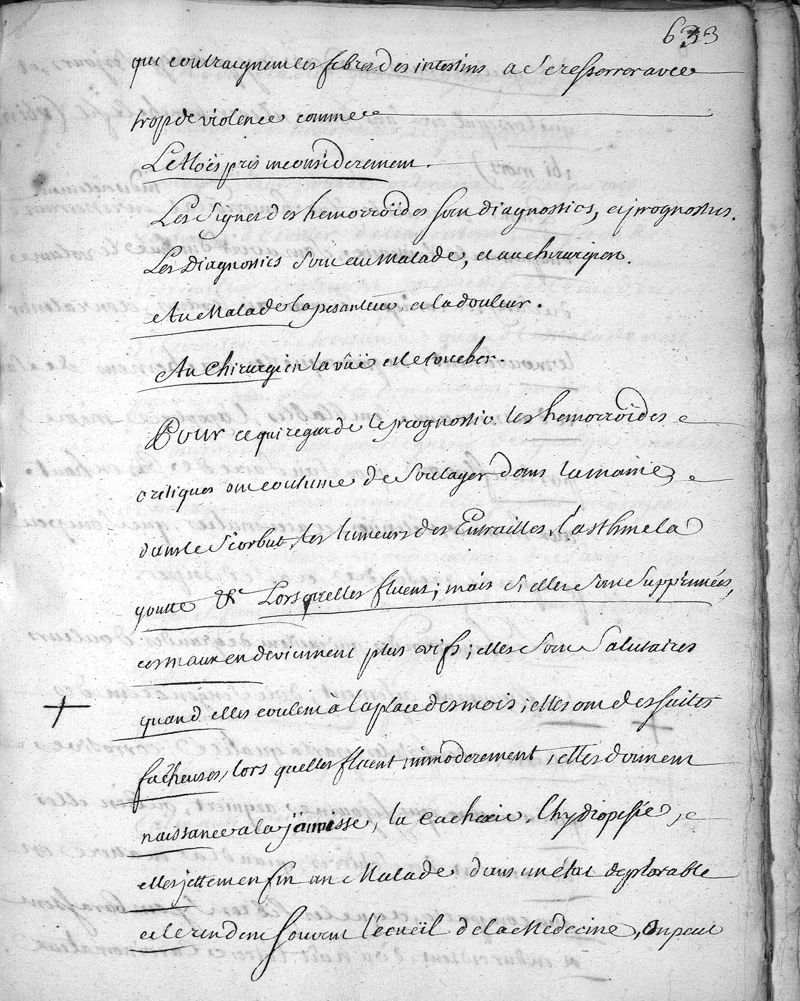 633
qui contraignent les fibres des intestins a se resserrer avec
trop de violence comme
L'alloës pris inconsiderement.
Les signes des hemorroïdes sont diagnostics, et prognostics.
Les Diagnostics sont au malade, et au chirurgien.
Au Malade la pesanteur, et la douleur.
Au chirurgien la vûë et le toucher.
Pour ce qui regarde le prognostic les hemorroïdes
critiques ont coutume de soulager dans la manie,
dans le scorbut, les tumeurs des Entrailles, l'asthme la
goutte &c Lorsquelles fluent; mais si elles sont supprimées,
ces maux en deviennent plus vifs; elles sont salutaires
quand elles coulent a la place des mois; elles ont des suites
facheuses, lors quelles fluent immoderement, elles donnent
naissance a la jaunisse, la cachexie, l'hydropisie,
elles jettent enfin un Malade dans un état deplorable
et le rendent souvent l'écueïl de la Medecine, on peut